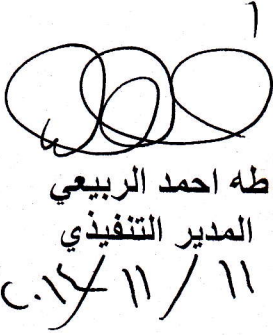 طه احمد الربيعي
المدير التنفيذي
١١ / ١١ / ٢٠١٤